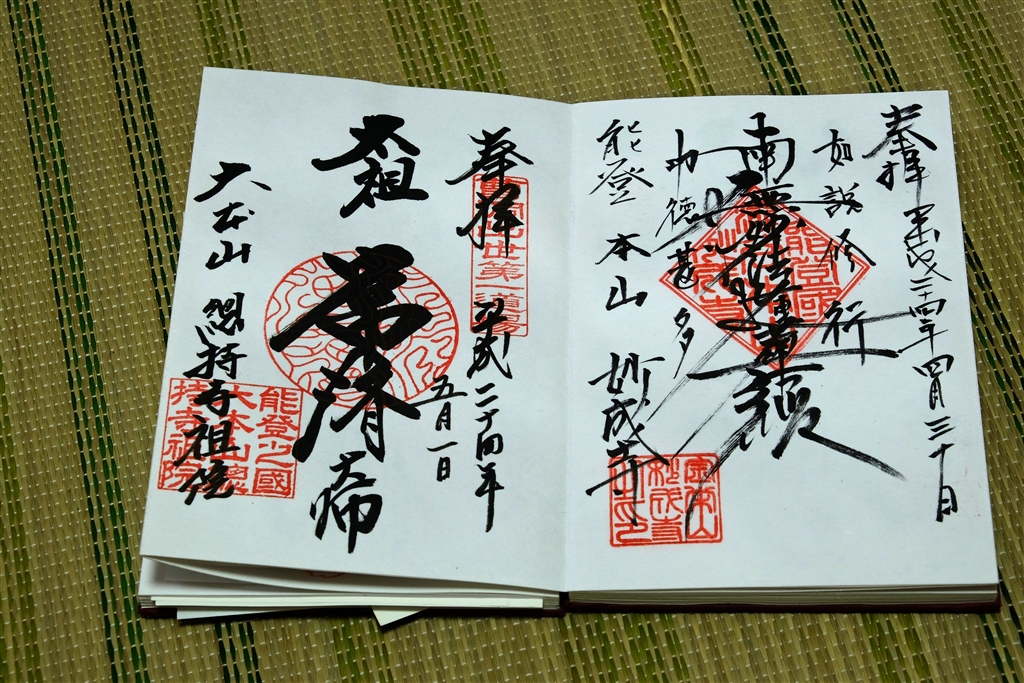 奉拝 平成二十四年四月三十日
如説修行
南無妙法蓮華経
功徳甚多
能登 本山 妙成寺
奉拝 平成二十四年
五月一日
太祖 常濟大師
大本山 總持寺祖院
能登國
大本山總
持寺祖院